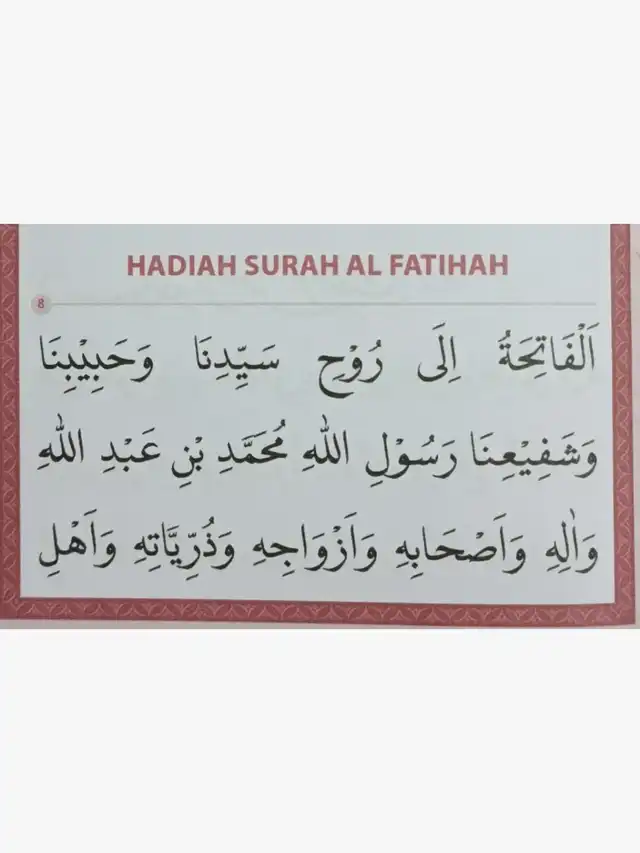 HADIAH SURAH AL FATIHAH
8
اَلْفَاتِحَةُ اِلَى رُوْحِ سَيِّدِنَا وَحَبِيْبِنَا
وَشَفِيْعِنَا رَسُوْلِ اللهِ مُحَمَّدِ بْنِ عَبْدِ اللهِ
وَاٰلِهِ وَاَصْحَابِهِ وَاَزْوَاجِهِ وَذُرِّيَّاتِهِ وَاَهْلِ